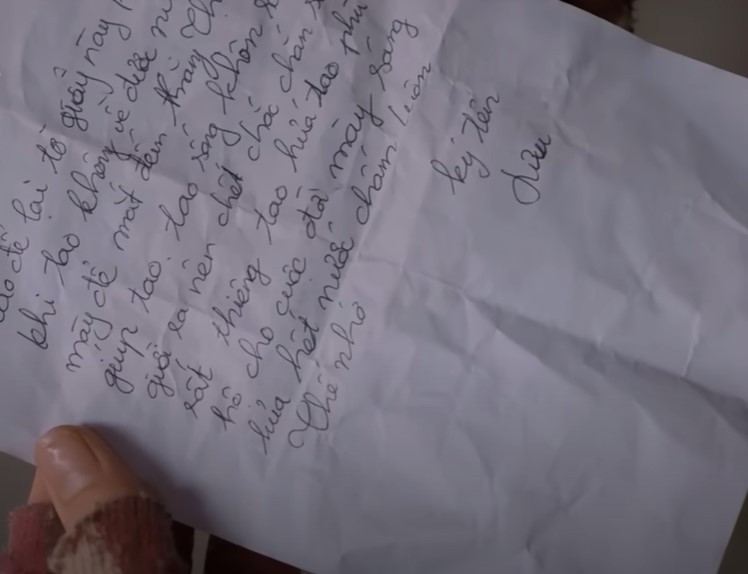 để lại tờ giấy này
khi tao không về được
mày để mắt đến thằng
giúp tao. tao sống khôn
giỏi ra nên chết chắc chắn
rất thiêng tao hứa tao phù
hộ cho cuộc đời mày sáng
hứa hết nước chấm luôn
Thế nhớ
ký tên